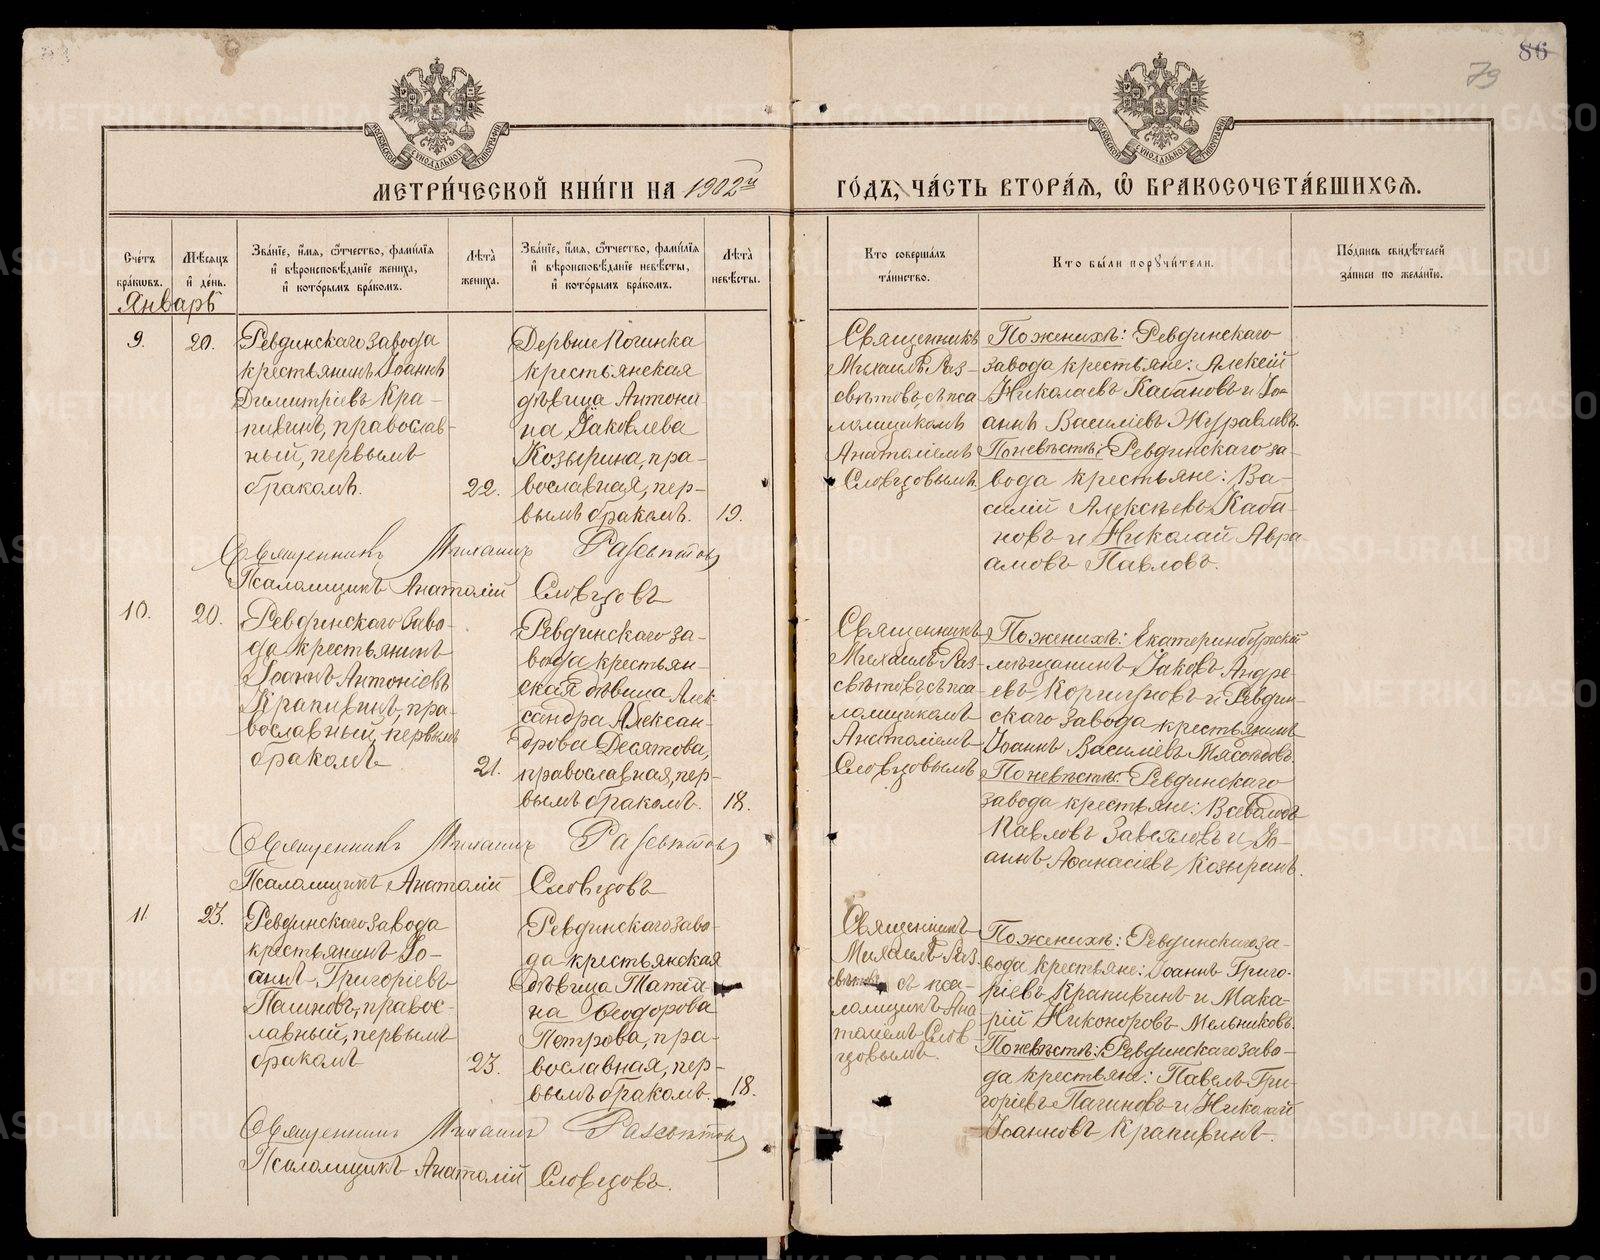 86
79
МОСКОВСКОЙ СѴНОДАЛЬНОЙ ТИПОГРАФІИ
МОСКОВСКОЙ СѴНОДАЛЬНОЙ ТИПОГРАФІИ
МЕТРИ́ЧЕСКОЙ КНИ́ГИ НА 1902й
ГО́ДЪ, ЧА́СТЬ ВТОРА́Ѧ, Ѡ҆ БРАКОСОЧЕТА́ВШИХСѦ.
Сче́тъ
бра́кѡвъ.
Мѣ́сѧцъ
и҆ де́нь.
Зва́нїе, и҆́мѧ, ѻ҆́тчество, фами́лїѧ
и҆ вѣроисповѣ́данїе жениха̀,
и҆ кото́рымъ бра́комъ.
Лѣ́та̀
жениха̀.
Зва́нїе, и҆́мѧ, ѻ҆́тчество, фами́лїѧ
и҆ вѣроисповѣ́данїе невѣ́сты,
и҆ кото́рымъ бра́комъ.
Лѣ́та̀
невѣ́сты.
Кто̀ соверша́лъ
та́инство.
Кто̀ бы́ли порꙋчи́тели.
По́дпись свидѣ́телей
за́писи по жела́нїю.
Январь
9.
20.
Ревдинскаго завода
крестьянинъ Іоаннъ
Димитріевъ Кра-
пивинъ, православ-
ный, первымъ
бракомъ.
22.
Деревни Починка
крестьянская
дѣвица Антони
на Іаковлева
Козырина, пра-
вославная, пер-
вымъ бракомъ.
19.
Священникъ
Михаилъ Раз-
свѣтовъ, съ пса
ломщикомъ
Анатоліемъ
Словцовымъ
По женихѣ: Ревдинскаго
завода крестьяне: Алексѣй
Николаевъ Кабановъ и Іо-
аннъ Василіевъ Журавлевъ.
По невѣстѣ: Ревдинскаго за-
вода крестьяне: Ва-
силій Алексѣевъ Каба-
новъ и Николай Авра-
амовъ Павловъ.
Священникъ Михаилъ Разсвѣтовъ
Псаломщикъ Анатолій Словцовъ
10.
20.
Ревдинскаго заво-
да крестьянинъ
Іоаннъ Антоніевъ
Крапивинъ, пра-
вославный, первымъ
бракомъ
21.
Ревдинскаго за-
вода крестьян-
ская дѣвица Алек-
сандра Алексан-
дрова Десятова,
православная, пер-
вымъ бракомъ.
18.
Священникъ
Михаилъ Раз-
свѣтовъ съ пса-
ломщикомъ
Анатоліемъ
Словцовымъ
По женихѣ: Екатеринбургскій
мѣщанинъ Іаковъ Андре
евъ и Ревдин-
скаго завода крестьянинъ
Іоаннъ Василіевъ Мясоѣдовъ.
По невѣстѣ: Ревдинскаго
завода крестьяне: Всеволодъ
Павловъ Завьяловъ и Іо-
аннъ Аѳанасіевъ Козыринъ.
Священникъ Михаилъ Разсвѣтовъ
Псаломщикъ Анатолій Словцовъ
11.
23.
Ревдинскаго завода
крестьянинъ Іо-
аннъ Григоріевъ
Пашновъ, правос-
лавный, первымъ
бракомъ
23.
Ревдинскаго заво-
да крестьянская
дѣвица Татiа
на Ѳеодорова
Петрова, пра-
вославная, пер-
вымъ бракомъ.
18.
Священникъ
Михаилъ Раз-
свѣтовъ съ пса-
ломщикъ Ана
толіемъ Слов
цовымъ.
По женихѣ: Ревдинскаго за-
вода крестьяне: Іоаннъ Григо-
ріевъ Крапивинъ и Мака-
рій Никоноровъ Мельниковъ.
По невѣстѣ: Ревдинскаго заво-
да крестьяне: Павелъ Гри-
горіевъ и Николай
Іоанновъ Крапивинъ.
Священникъ Михаилъ Разсвѣтовъ
Псаломщикъ Анатолій Словцовъ.
METRIKI.GASO-URAL.RU